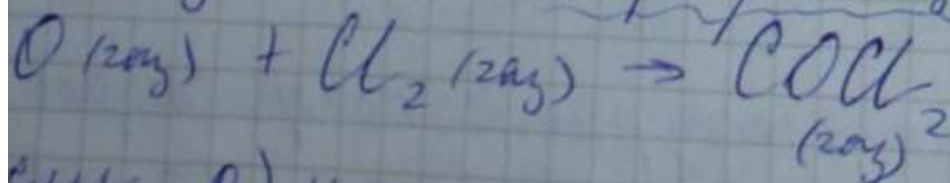 O (газ) + Cl₂ (газ) → COCl₂
(газ)